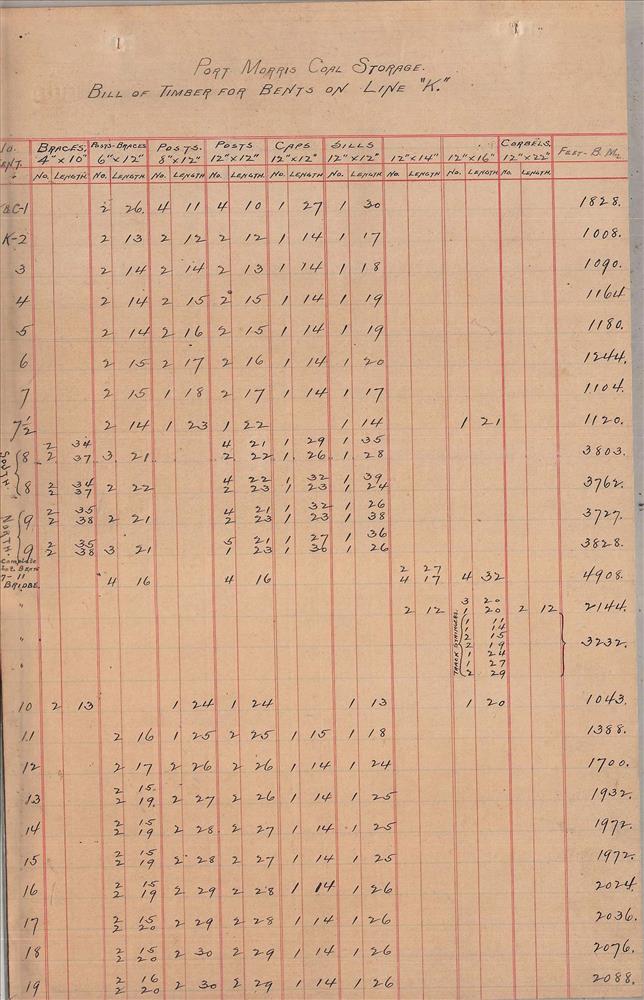 PORT MORRIS COAL STORAGE.
BILL OF TIMBER FOR BENTS ON LINE "K."
No. BRACES. POSTS-BRACES POSTS. POSTS CAPS SILLS CORBELS. FEET-B.M.
BENT. 4"x10" 6"x12" 8"x12" 12"x12" 12"x12" 12"x12" 12"x14" 12"x16" 12"x22"
No. LENGTH. No. LENGTH. No. LENGTH No. LENGTH No. LENGTH No. LENGTH No. LENGTH No. LENGTH No. LENGTH.
&C-1 2 26. 4 11 4 10 1 27 1 30 1828.
K-2 2 13 2 12 2 12 1 14 1 17 1008.
3 2 14 2 14 2 13 1 14 1 18 1090.
4 2 14 2 15 2 15 1 14 1 19 1164
5 2 14 2 16 2 15 1 14 1 19 1180.
6 2 15 2 17 2 16 1 14 1 20 1244.
7 2 15 1 18 2 17 1 14 1 17 1104.
7½ 2 14 1 23 1 22 1 14 1 21 1120.
SOUTH.
2 34 4 21 1 29 1 35
8 2 37 3 21 2 22 1 26 1 28 3803.
2 34 4 22 1 32 1 39
8 2 37 2 22 2 23 1 23 1 24 3762.
NORTH.
2 35 4 21 1 32 1 26
9 2 38 2 21 2 23 1 23 1 38 3727.
2 35 5 21 1 27 1 36
9 2 38 3 21 1 23 1 30 1 26 3828.
Complete
7-11 2 27
BRIDGE. 4 16 4 16 4 17 4 32 4908.
3 20
" 2 12 1 20 2 12 2144.
TRACK STRINGERS.
1 11
1 14
2 15
" 2 19 3232.
1 24
1 27
2 29
10 2 13 1 24 1 24 1 13 1 20 1043.
11 2 16 1 25 2 25 1 15 1 18 1388.
12 2 17 2 26 2 26 1 14 1 24 1700.
2 15.
13 2 19. 2 27 2 26 1 14 1 25 1932.
2 15
14 2 19 2 28 2 27 1 14 1 25 1972.
2 15
15 2 19 2 28 2 27 1 14 1 25 1972.
2 15
16 2 19 2 29 2 28 1 14 1 26 2024.
2 15
17 2 20 2 29 2 28 1 14 1 26 2036.
2 15
18 2 20 2 30 2 29 1 14 1 26 2076.
2 16
19 2 20 2 30 2 29 1 14 1 26 2088.